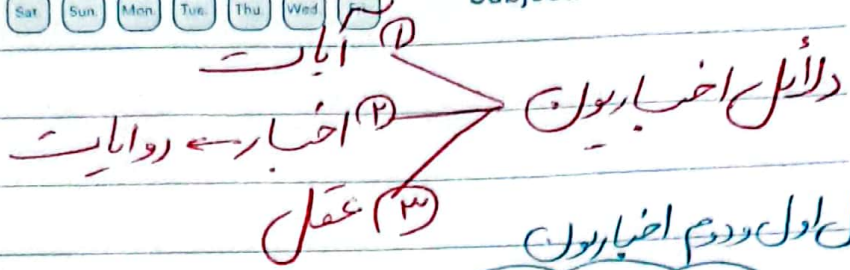 Sat Sun Mon Tue. Thu Wed
① آیات
دلائل اخباریون
② اخبار ← روایات
③ عقل
اول و دوم اخباریون